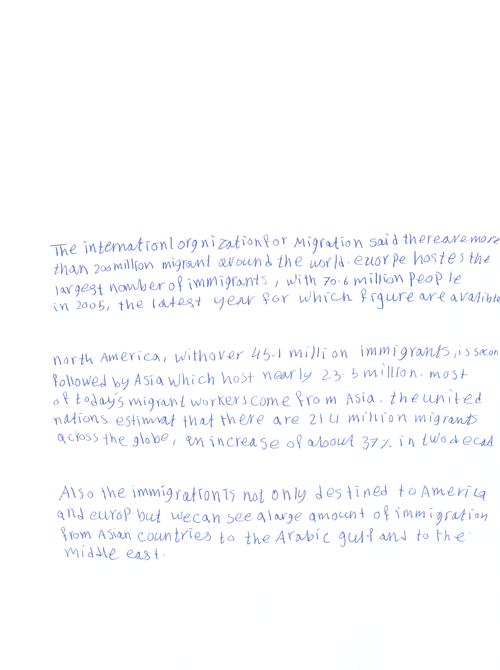 The internationl orgnization for Migration said there are more
than 200 million migrant around the world. euorpe hostes the
largest nomber of immigrants, with 70.6 million people
in 2005, the latest year for which figure are avalible
north America, with over 45.1 million immigrants, is secon
followed by Asia which host nearly 23.5 million. most
of today's migrant workers come from Asia. the united
nations estimat that there are 214 million migrants
across the globe, an increase of about 37% in two decad
Also the immigration is not only destined to America
and europ but we can see a large amount of immigration
from Asian countries to the Arabic gulf and to the
middle east.